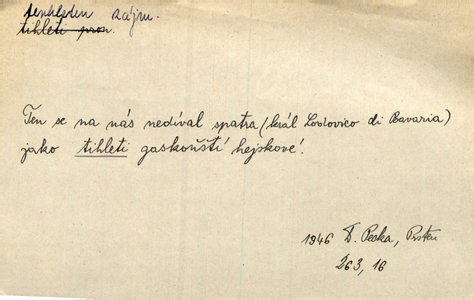 tenhleten zájm.
tihleti pron.
Ten se na nás nedíval spatra (král Lodovico di Bavaria)
jako tihleti gaskoňští hejskové!
1946 D. Pecka, Prsten
263, 16